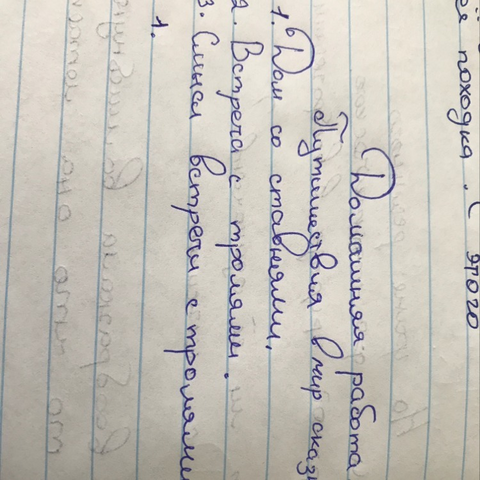 ее походка. С этого
Домашняя работа
Путишествия в мир сказ
1. Дом со ставнями.
2. Встреча с тролями.
3. Смысл встречи с тролями
1.